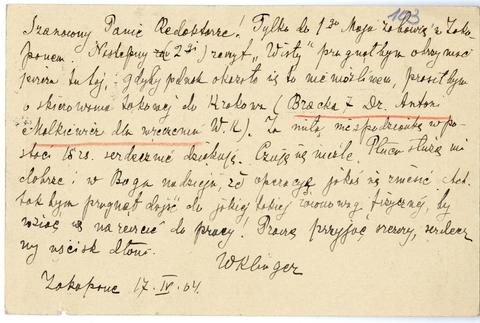 193
Szanowny Panie Redaktorze! Tylko do 1go Maja zabawię w Zako-
panem. Następny (2gi) zeszyt „Wisły” pragnąłbym otrzymać
jeszcze tutaj; gdyby jednak okazało się to niemożliwem, prosiłbym
o skierowanie takowej do Krakowa (Bracka 7 Dr. Antoni
Małkiewicz dla wręczenia W.K). Za miłą niespodziankę w po-
staci 15 rs. serdecznie dziękuję. Czuję się nieźle. Płuca służą mi
dobrze i w Bogu nadzieja, że operację jakoś się zniesie. Ach
tak bym pragnął dojść do jakiej takiej równowagi fizycznej, by
wziąć się nareszcie do pracy! Proszę przyjąć wyrazy, serdecz
ny uścisk dłoni.
WKlinger
Zakopane 17.IV.04.